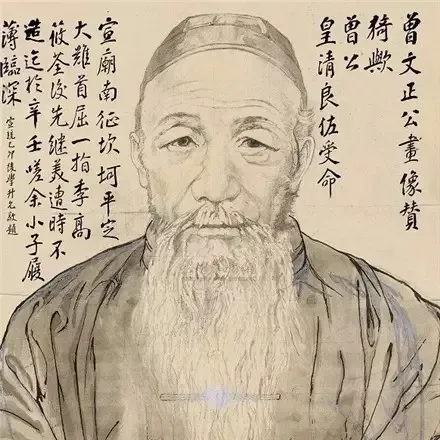 曾文正公畫像贊
猗歟
曾公
皇清良佐受命
宣廟南征坎坷平定
大難首屈一指李高
筱荃後先繼美遭時不
造迄於辛壬嗟余小子履
薄臨深
宣統乙卯後學升允敬題